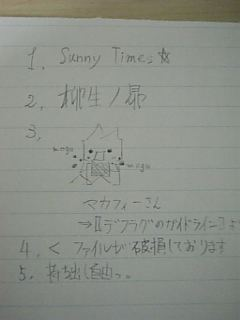 1. Sunny Times☆
2. 柳生ノ昴
3.
mogu
mogu
マカフィーさん
⇒『デフラグのガイドライン』よ
4. < ファイルが破損しております
5. 持ち出し自由っ。